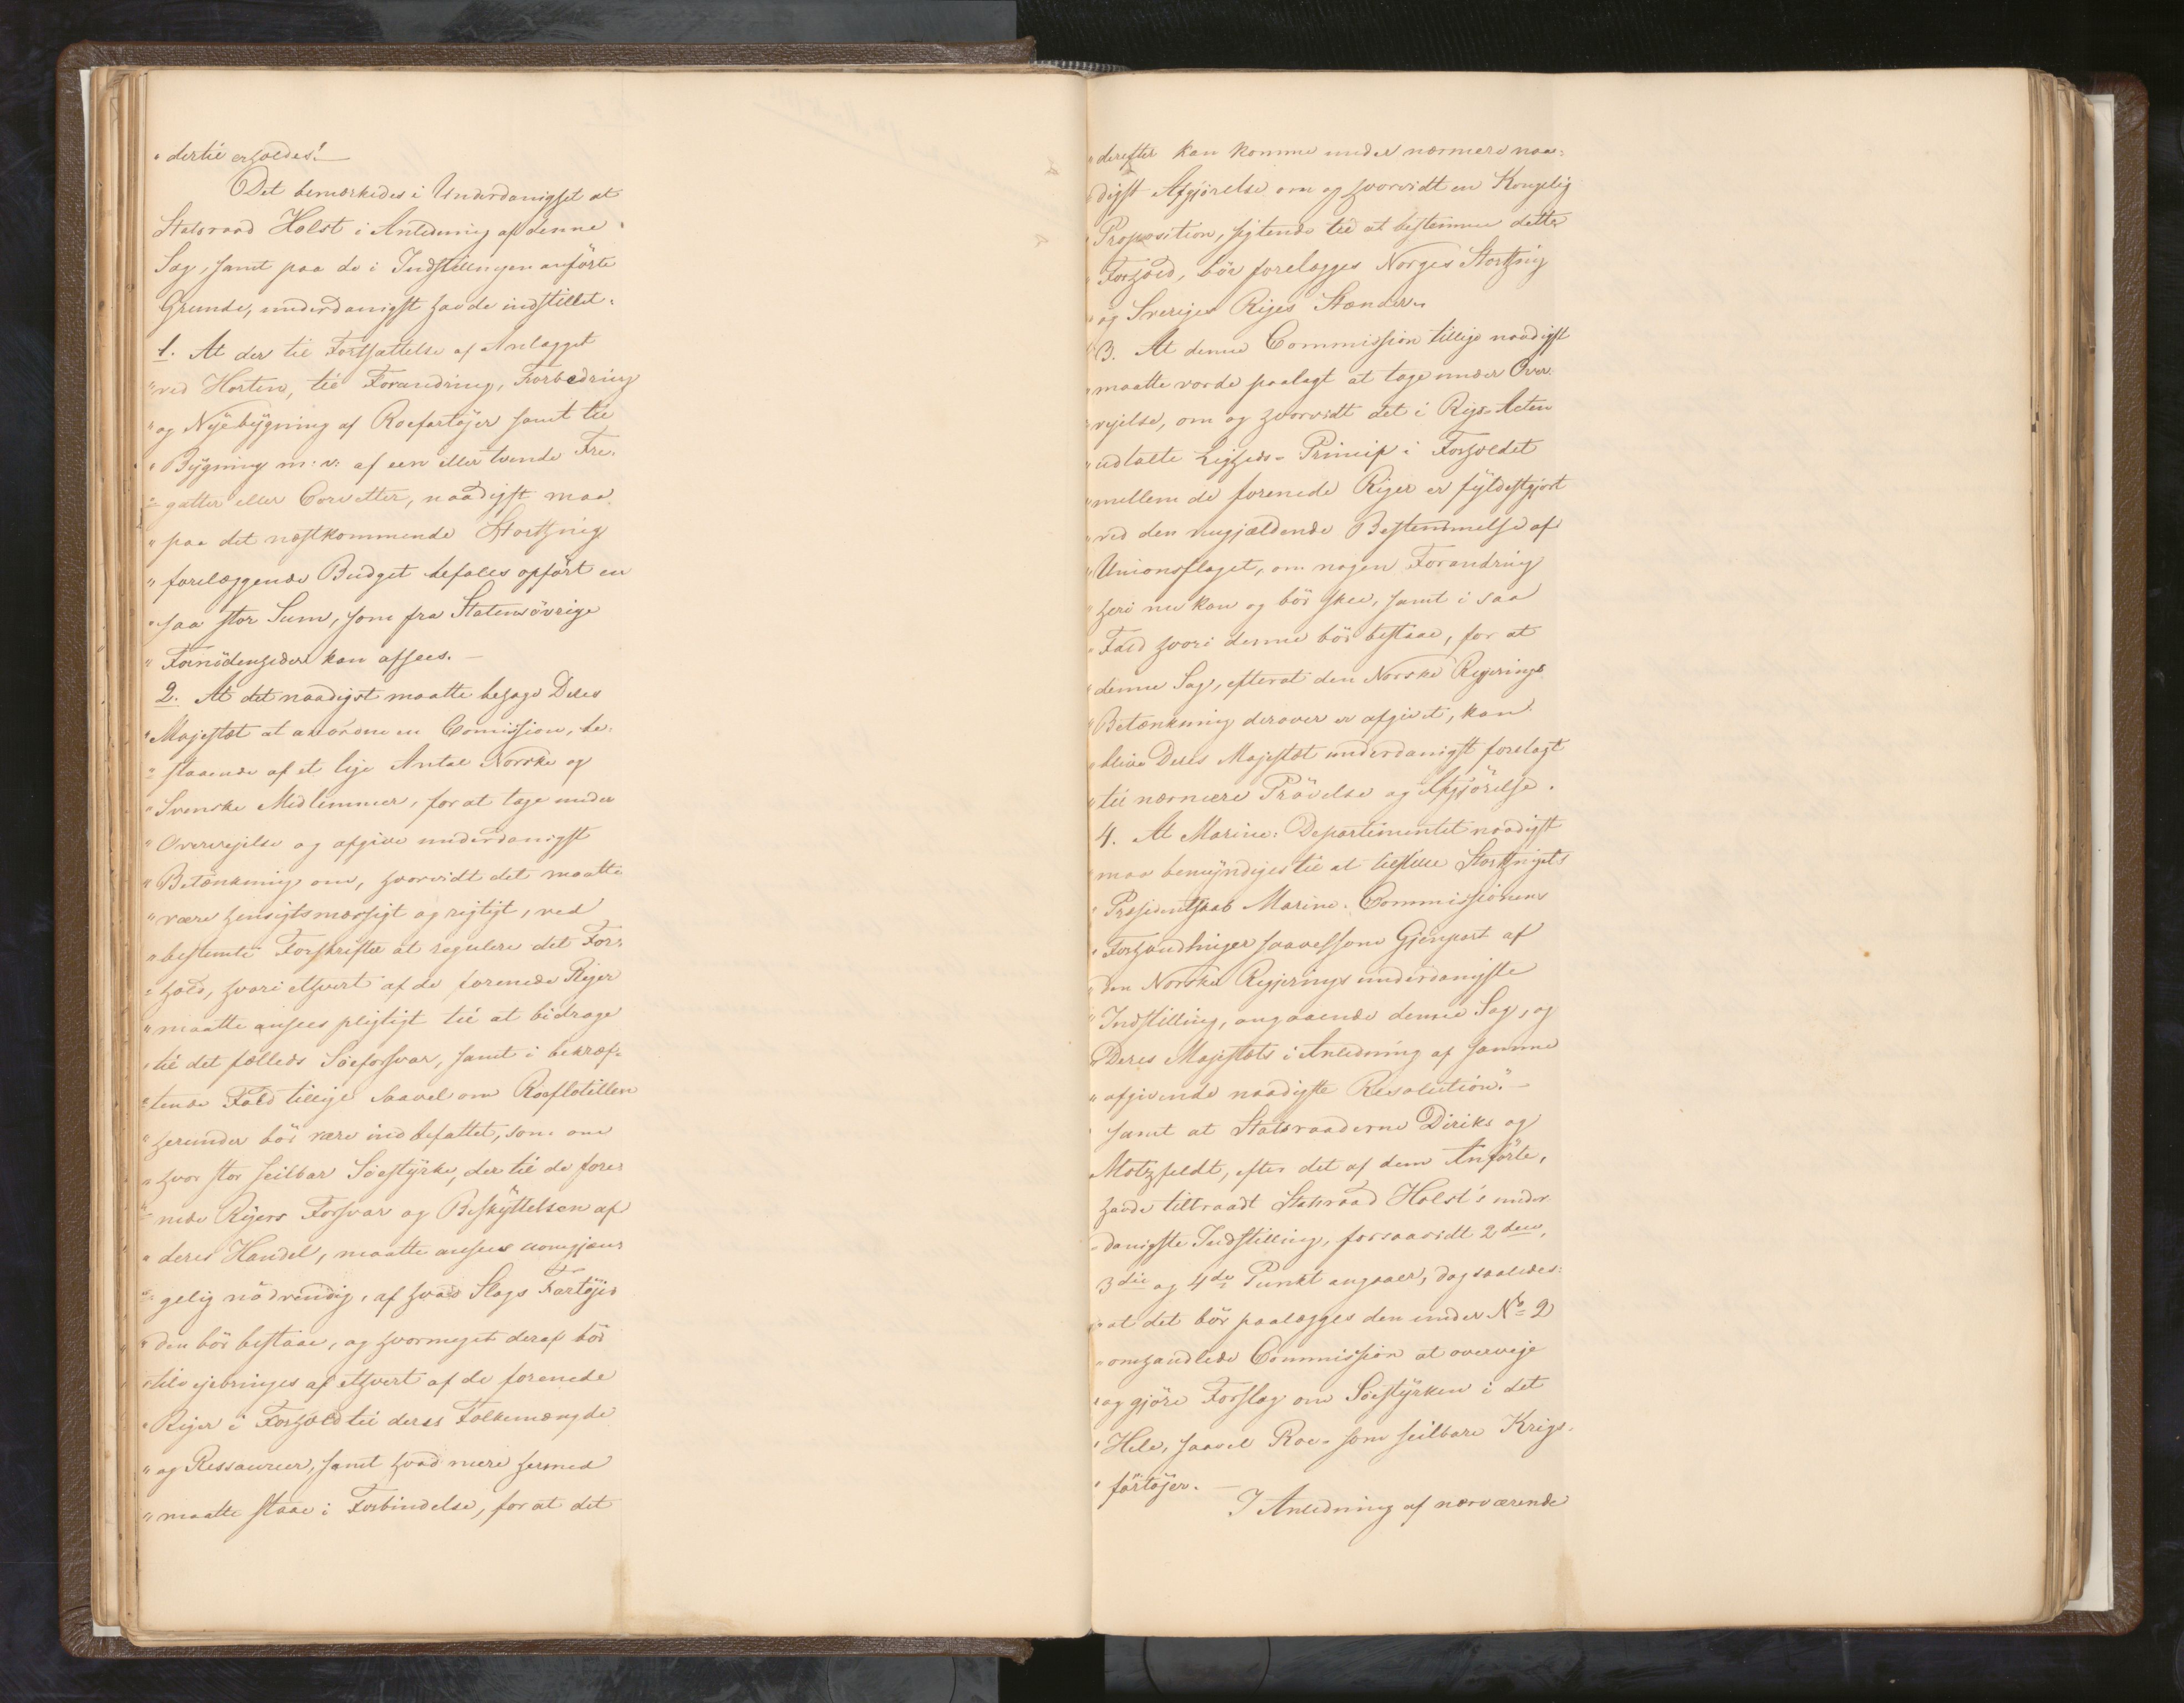 "dertil erholdes."—
Det bemærkedes i Underdanighet at
Statsraad Holst i Anledning af denne
Sag, samt paa de i Indstillingen anförte
Grunde, underdanigst havde indstillet:
1. At der til Fortsættelse af Anlægget
"ved Horten, til Forandring, Forbedring
"og Nÿebÿgning af Roefartöjer samt til
"Bÿgning m: v: af een eller tvende Fre-
"gatter eller Corvetter, naadigst maa
"paa det næstkommende Storthing
"forelæggende Budget befales opfört en
"saa stor Sum, som fra Statens övrige
"Fornödenheder kan afsees. —
2. At det naadigst maatte behage Deres
"Majestæt at anordne en Comission, be-
"staaende af et lige Antal Norske og
"Svenske Medlemmer, for at tage under
"Overvejelse og afgive underdanigst
"Betænkning om, hvorvidt det maatte
"være hensigtsmæssigt og rigtigt, ved
"bestemte Forskrifter at regulere det For-
"hold, hvori ethvert af de forenede Riger
"maatte ansees pligtigt til at bidrage
"til det fælleds Söeforsvar, samt i bekræf-
"tende Fald tillige saavel om Roeflotillen
"herunder bör være indbefattet, som om
"hvor stor seilbar Söestÿrke, der til de fore-
"nede Rigers Forsvar og Beskÿttelsen af
"deres Handel, maatte ansees uomgjæn-
"gelig nödvendig, af hvad Slags Fartöjer
"den bör bestaae, og hvormeget deraf bör
"tilvejebringes af ethvert af de forenede
"Riger i Forhold til deres Folkemængde
"og Ressourcer, samt hvad mere hermed
"maatte staae i Forbindelse, for at det
"derefter kan komme under nærmere naa-
"digst Afgjörelse om og hvorvidt en Kongelig
"Proposition, sigtende til at bestemme dette
"Forhold, bör forelægges Norges Storthing
"og Sveriges Riges Stænder.
"3. At denne Commission tillige naadigst
"maatte vorde paalagt at tage under Over-
"vejelse, om og hvorvidt det i Rigs-Acten
"udtalte Ligheds-Princip i Forholdet
"mellem de forenede Riger er fÿldestgjort
"ved den nugjældende Bestemmelse af
"Unionsflaget, om nogen Forandring
"heri nu kan og bör skee, samt i saa
"Fald hvori denne bör bestaae, for at
"denne Sag, efterat den Norske Regjerings
"Betænkning derover er afgivet, kan
"blive Deres Majestæt underdanigst forelagt
"til nærmere Prövelse og Afgjörelse.
4. At Marine-Departementet naadigst
"maa bemÿndiges til at tilstille Storthingets
"Præsidentskab Marine-Commissionens
"Forhandlinger saavelsom Gjenpart af
"den Norske Regjerings underdanigste
"Indstilling, angaaende denne Sag, og
"Deres Majestæts i Anledning af samme
"afgivende naadigste Resolution." —
samt at Statsraaderne Diriks og
Motzfeldt, efter det af dem Anförte,
havde tiltraadt Statsraad Holst's under-
danigste Indstilling, forsaavidt 2den,
3die og 4de Punkt angaaer, dog saaledes:
"at det bör paalægges den under No 2
"omhandlede Commission at overveje
"og gjöre Forslag om Söestÿrken i det
"Hele, saavel Roe- som seilbare Krigs-
"fartöjer. —
I Anledning af nærværende